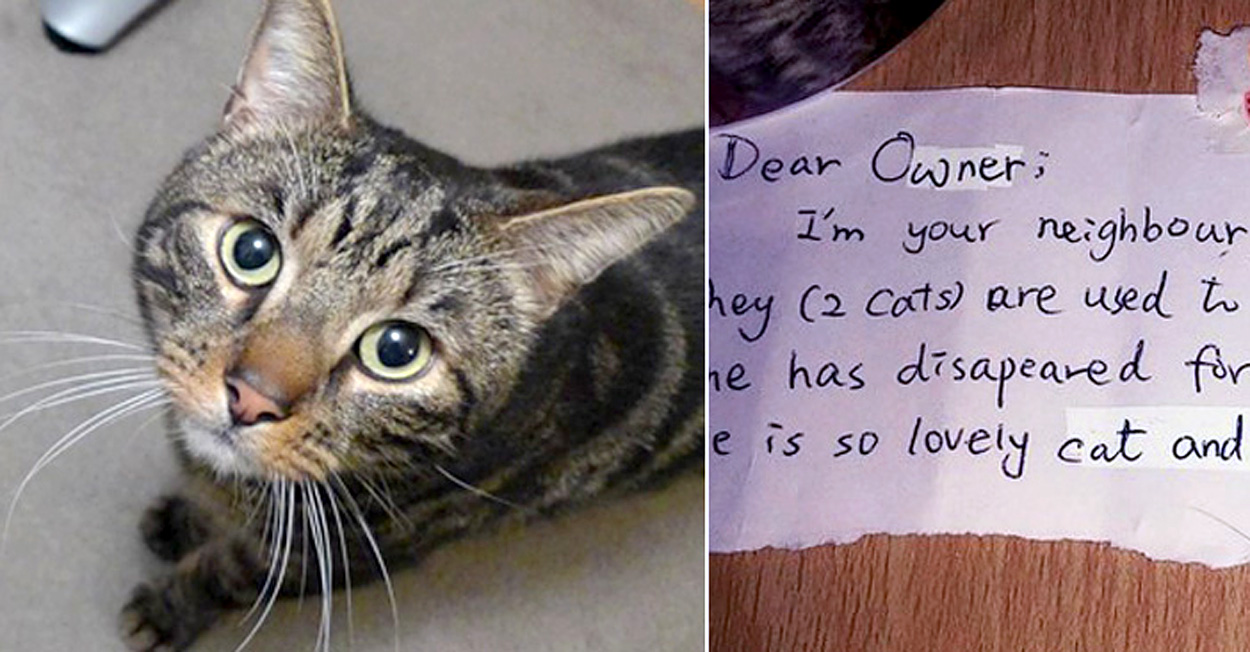 Dear Owner;
I'm your neighbour
hey (2 cats) are used to
he has disapeared for
e is so lovely cat and